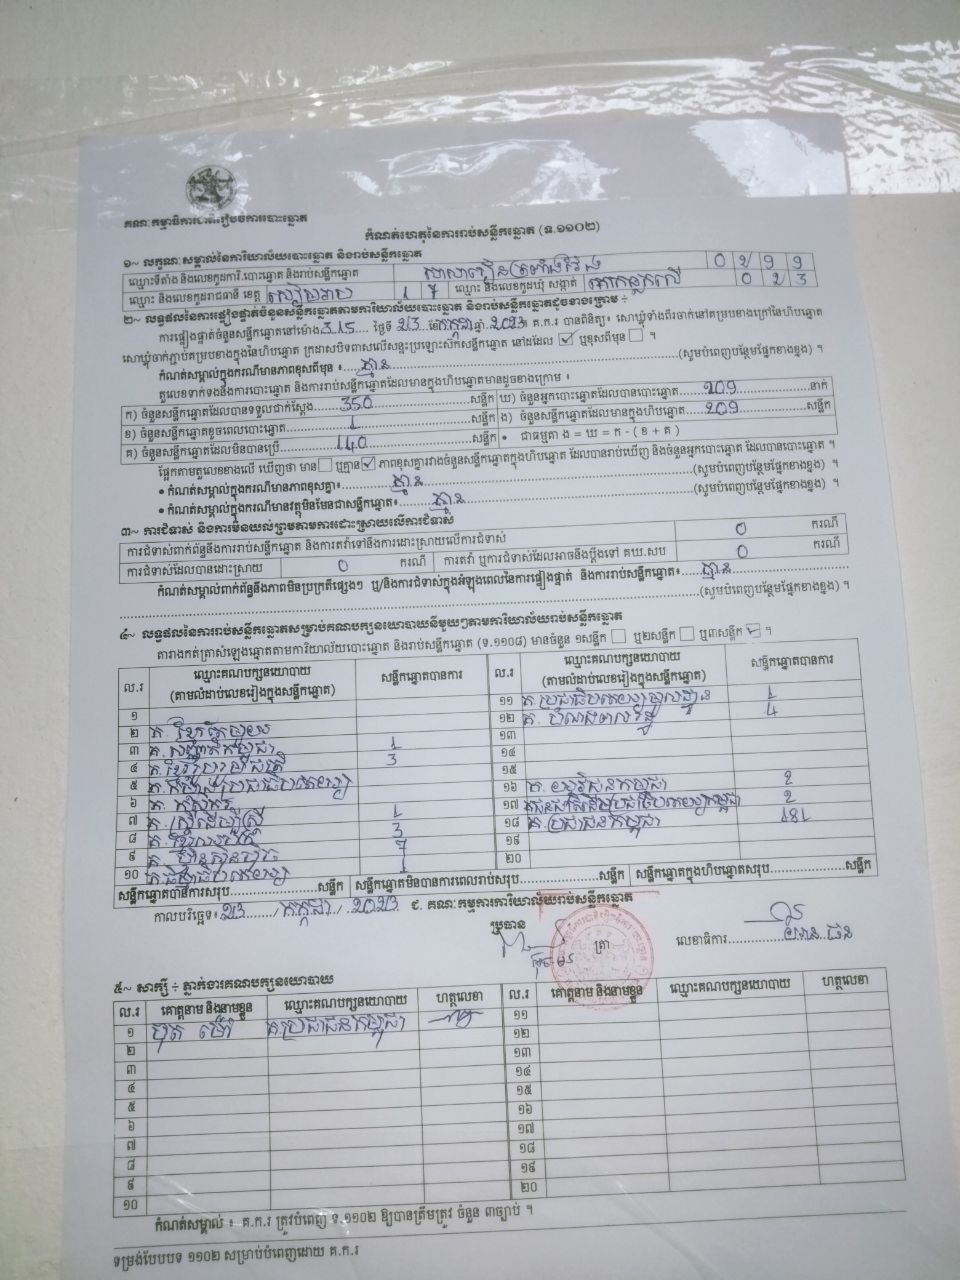 គណៈកម្មាធិការជាតិរៀបចំការបោះឆ្នោត
កំណត់ហេតុនៃការរាប់សន្លឹកឆ្នោត (ទ.១១០២)
១~ លក្ខណៈសម្គាល់នៃការិយាល័យបោះឆ្នោត និងរាប់សន្លឹកឆ្នោត
ឈ្មោះទីតាំង និងលេខកូដការិ.បោះឆ្នោត និងរាប់សន្លឹកឆ្នោត
ឈ្មោះ និងលេខកូដរាជធានី ខេត្ត សៀមរាប 1 7 ឈ្មោះ និងលេខកូដឃុំ សង្កាត់ 0 2 3
២~ លទ្ធផលនៃការផ្ទៀងផ្ទាត់ចំនួនសន្លឹកឆ្នោតតាមការិយាល័យបោះឆ្នោត និងរាប់សន្លឹកឆ្នោតដូចខាងក្រោម ÷
ការផ្ទៀងផ្ទាត់ចំនួនសន្លឹកឆ្នោតនៅម៉ោង 3.15 ថ្ងៃទី 23 ខែ កក្កដា ឆ្នាំ 2023 គ.ក.រ បានពិនិត្យ៖ សោឃ្មុំទាំងពីរចាក់នៅគម្របខាងក្រៅនៃហិបឆ្នោត
សោឃ្មុំចាក់ភ្ជាប់គម្របខាងក្នុងនៃហិបឆ្នោត ក្រដាសបិទពាសលើសន្ទះប្រឡោះស៊កសន្លឹកឆ្នោត នៅដដែល ☑ ឬខុសពីមុន ☐ ។
កំណត់សម្គាល់ក្នុងករណីមានភាពខុសពីមុន ៖ គ្មាន (សូមបំពេញបន្ថែមផ្នែកខាងខ្នង) ។
តួលេខទាក់ទងនឹងការបោះឆ្នោត និងការរាប់សន្លឹកឆ្នោតដែលមានក្នុងហិបឆ្នោតមានដូចខាងក្រោម ៖
ក) ចំនួនសន្លឹកឆ្នោតដែលបានទទួលជាក់ស្តែង 350 សន្លឹក ឃ) ចំនួនអ្នកបោះឆ្នោតដែលបានបោះឆ្នោត 209 នាក់
ខ) ចំនួនសន្លឹកឆ្នោតខូចពេលបោះឆ្នោត 1 សន្លឹក ង) ចំនួនសន្លឹកឆ្នោតដែលមានក្នុងហិបឆ្នោត 209 សន្លឹក
គ) ចំនួនសន្លឹកឆ្នោតដែលមិនបានប្រើ 140 សន្លឹក • ជាធម្មតា ង = ឃ = ក - ( ខ + គ )
ផ្អែកតាមតួលេខខាងលើ ឃើញថា មាន ☐ ឬគ្មាន ☑ ភាពខុសគ្នារវាងចំនួនសន្លឹកឆ្នោតក្នុងហិបឆ្នោត ដែលបានរាប់ឃើញ និងចំនួនអ្នកបោះឆ្នោត ដែលបានបោះឆ្នោត ។
• កំណត់សម្គាល់ក្នុងករណីមានភាពខុសគ្នា៖ គ្មាន (សូមបំពេញបន្ថែមផ្នែកខាងខ្នង) ។
• កំណត់សម្គាល់ក្នុងករណីមានវត្ថុមិនមែនជាសន្លឹកឆ្នោត៖ គ្មាន (សូមបំពេញបន្ថែមផ្នែកខាងខ្នង) ។
៣~ ការជំទាស់ និងការមិនយល់ព្រមតាមការដោះស្រាយលើការជំទាស់
ការជំទាស់ពាក់ព័ន្ធនឹងការរាប់សន្លឹកឆ្នោត និងការតវ៉ាទៅនឹងការដោះស្រាយលើការជំទាស់ 0 ករណី
ការជំទាស់ដែលបានដោះស្រាយ 0 ករណី ការតវ៉ា ឬការជំទាស់ដែលអាចនឹងប្តឹងទៅ គឃ.សប 0 ករណី
កំណត់សម្គាល់ពាក់ព័ន្ធនឹងភាពមិនប្រក្រតីផ្សេងៗ ឬ/និងការជំទាស់ក្នុងអំឡុងពេលនៃការផ្ទៀងផ្ទាត់ និងការរាប់សន្លឹកឆ្នោត៖ គ្មាន
(សូមបំពេញបន្ថែមផ្នែកខាងខ្នង) ។
៤~ លទ្ធផលនៃការរាប់សន្លឹកឆ្នោតសម្រាប់គណបក្សនយោបាយនីមួយៗតាមការិយាល័យរាប់សន្លឹកឆ្នោត
តារាងកត់ត្រាសំឡេងឆ្នោតតាមការិយាល័យបោះឆ្នោត និងរាប់សន្លឹកឆ្នោត (ទ.១១០៨) មានចំនួន ១សន្លឹក ☐ ឬ២សន្លឹក ☐ ឬ៣សន្លឹក ☑ ។
ល.រ ឈ្មោះគណបក្សនយោបាយ (តាមលំដាប់លេខរៀងក្នុងសន្លឹកឆ្នោត) សន្លឹកឆ្នោតបានការ ល.រ ឈ្មោះគណបក្សនយោបាយ (តាមលំដាប់លេខរៀងក្នុងសន្លឹកឆ្នោត) សន្លឹកឆ្នោតបានការ
១ ១១ 1
២ ១២ 4
៣ 1 ១៣
៤ 3 ១៤
៥ ១៥
៦ ១៦ គ. យុវជនកម្ពុជា 2
៧ 1 ១៧ 2
៨ 3 ១៨ គ.ប្រជាជនកម្ពុជា 181
៩ 7 ១៩
១០ 1 ២០
សន្លឹកឆ្នោតបានការសរុប សន្លឹក សន្លឹកឆ្នោតមិនបានការពេលរាប់សរុប សន្លឹក សន្លឹកឆ្នោតក្នុងហិបឆ្នោតសរុប សន្លឹក
កាលបរិច្ឆេទ៖ 23 / កក្កដា / 2023 ៩. គណៈកម្មការការិយាល័យរាប់សន្លឹកឆ្នោត
ប្រធាន ត្រា លេខាធិការ
៥~ សាក្សី ÷ ភ្នាក់ងារគណបក្សនយោបាយ
ល.រ គោត្តនាម និងនាមខ្លួន ឈ្មោះគណបក្សនយោបាយ ហត្ថលេខា ល.រ គោត្តនាម និងនាមខ្លួន ឈ្មោះគណបក្សនយោបាយ ហត្ថលេខា
១ គ.ប្រជាជនកម្ពុជា ១១
២ ១២
៣ ១៣
៤ ១៤
៥ ១៥
៦ ១៦
៧ ១៧
៨ ១៨
៩ ១៩
១០ ២០
កំណត់សម្គាល់ ៖ គ.ក.រ ត្រូវបំពេញ ទ.១១០២ ឱ្យបានត្រឹមត្រូវ ចំនួន ៣ច្បាប់ ។
ទម្រង់បែបបទ ១១០២ សម្រាប់បំពេញដោយ គ.ក.រ